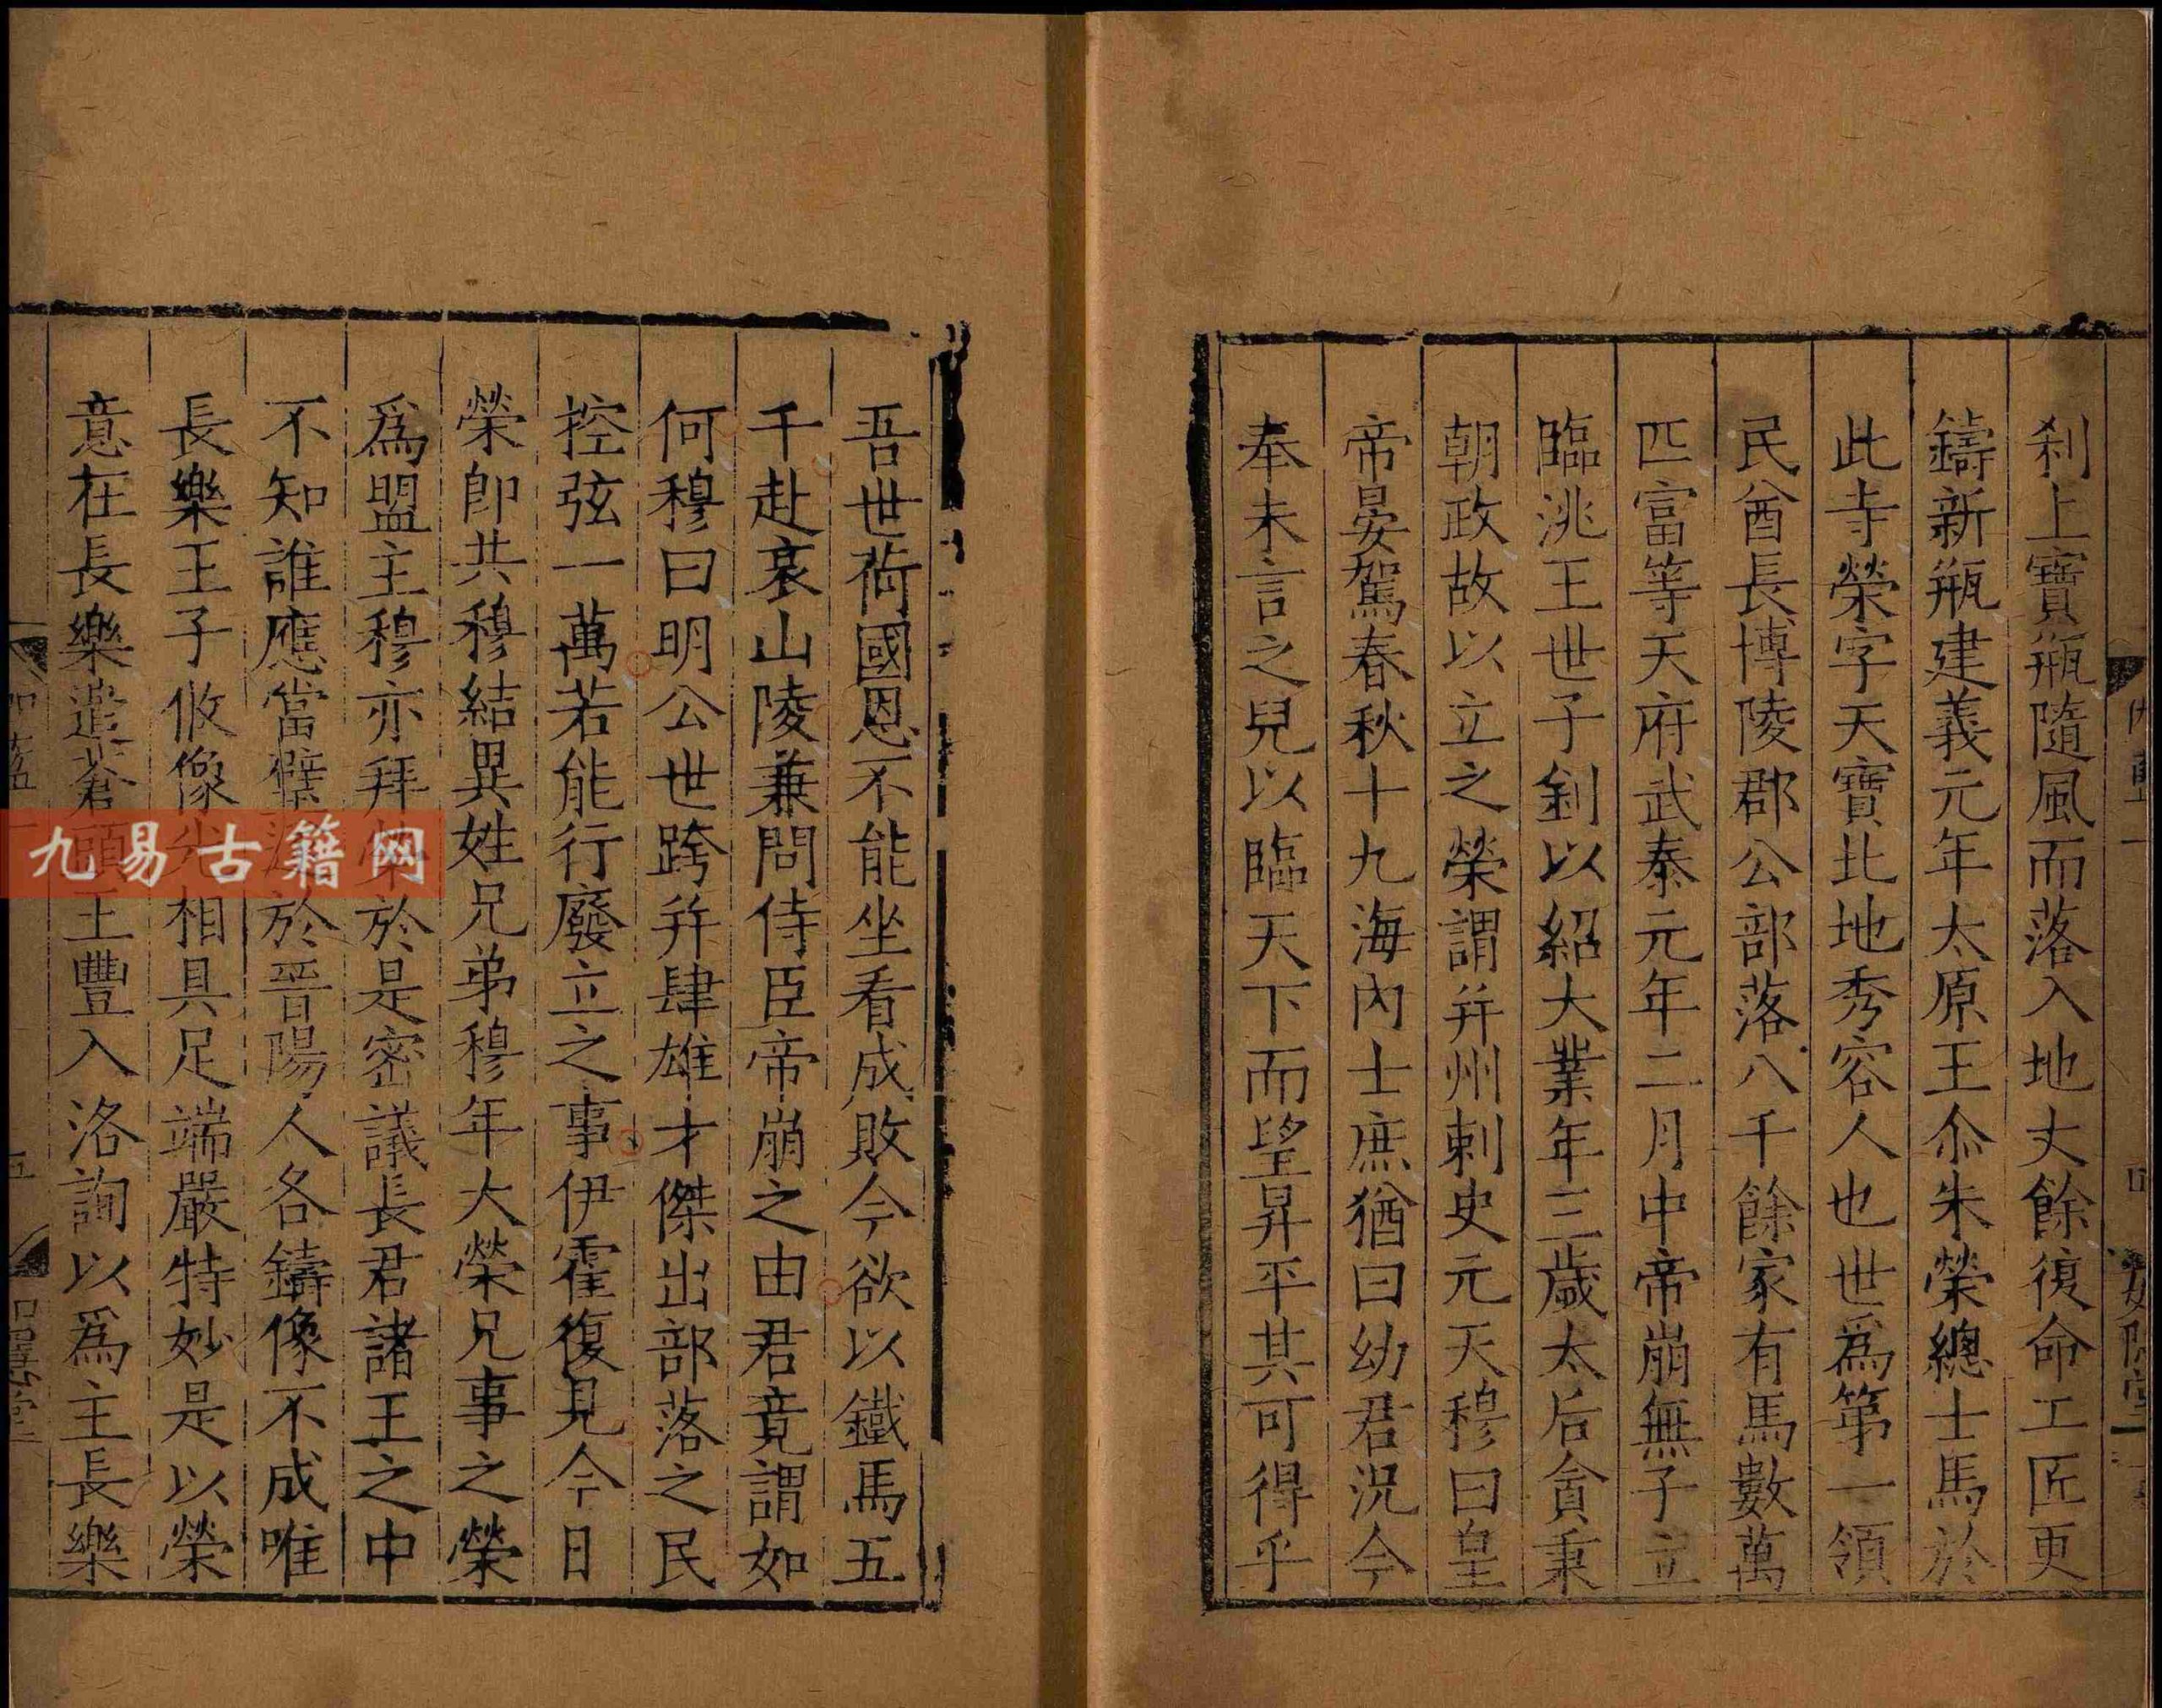 刹上寶瓶隨風而落入地丈餘復命工匠更
鑄新瓶建義元年太原王尒朱榮總士馬於
此寺榮字天寶北地秀容人也世爲第一領
民酋長博陵郡公部落八千餘家有馬數萬
匹富等天府武泰元年二月中帝崩無子立
臨洮王世子釗以紹大業年三歲太后貪秉
朝政故以立之榮謂并州刺史元天穆曰皇
帝晏駕春秋十九海內士庶猶曰幼君況今
奉未言之兒以臨天下而望昇平其可得乎
吾世荷國恩不能坐看成敗今欲以鐵馬五
千赴哀山陵兼問侍臣帝崩之由君竟謂如
何穆曰明公世跨并肆雄才傑出部落之民
控弦一萬若能行廢立之事伊霍復見今日
榮即共穆結異姓兄弟穆年大榮兄事之榮
爲盟主穆亦拜榮於是密議長君諸王之中
不知誰應當璧遂於晉陽人各鑄像不成唯
長樂王子攸像光相具足端嚴特妙是以榮
意在長樂遣蒼頭王豐入洛詢以爲主長樂
九易古籍网